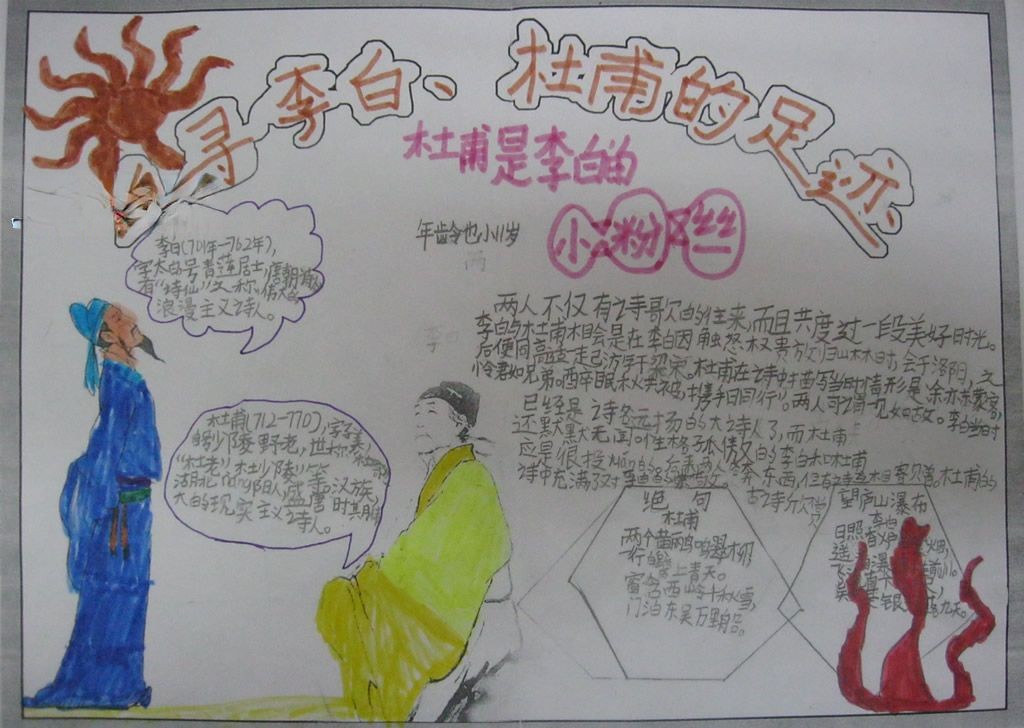 寻李白、杜甫的足迹
杜甫是李白的
小粉丝
年龄也小11岁
两
李白
李白(701年—762年),
字太白号青莲居士,唐朝诗人
有“诗仙”之称。伟大的
浪漫主义诗人。
杜甫(712—770),字子美,
自号少陵野老,世称
“杜老”,杜少陵”等,汉族,
湖北nang阳人,盛唐时其期
大的现实主义诗人。
两人不仅有诗歌欠的往来,而且共度过一段美好时光。
李白与杜甫相会是在李白因触怒权贵放归山林时,会于洛阳,之
后便同高适走已游于梁宋。杜甫在诗中描写当时情形是“余亦东蒙客,
怜君如兄弟。酉卒眠秋共被,携手日同行”。两人可谓一见如故。李白当时
已经是诗名远扬的大诗人了,而杜甫
还默默无闻。但性格孤傲的李白和杜甫
应是很投
诗中充满了对
东西,
杜甫的
古诗欣赏
绝句
杜甫
两个黄鹂鸣翠柳,
一行白鹭上青天。
窗含西岭千秋雪,
门泊东吴万里船。
望庐山瀑布
李白
日照香炉
烟,
瀑
前川。
直
银
九天。